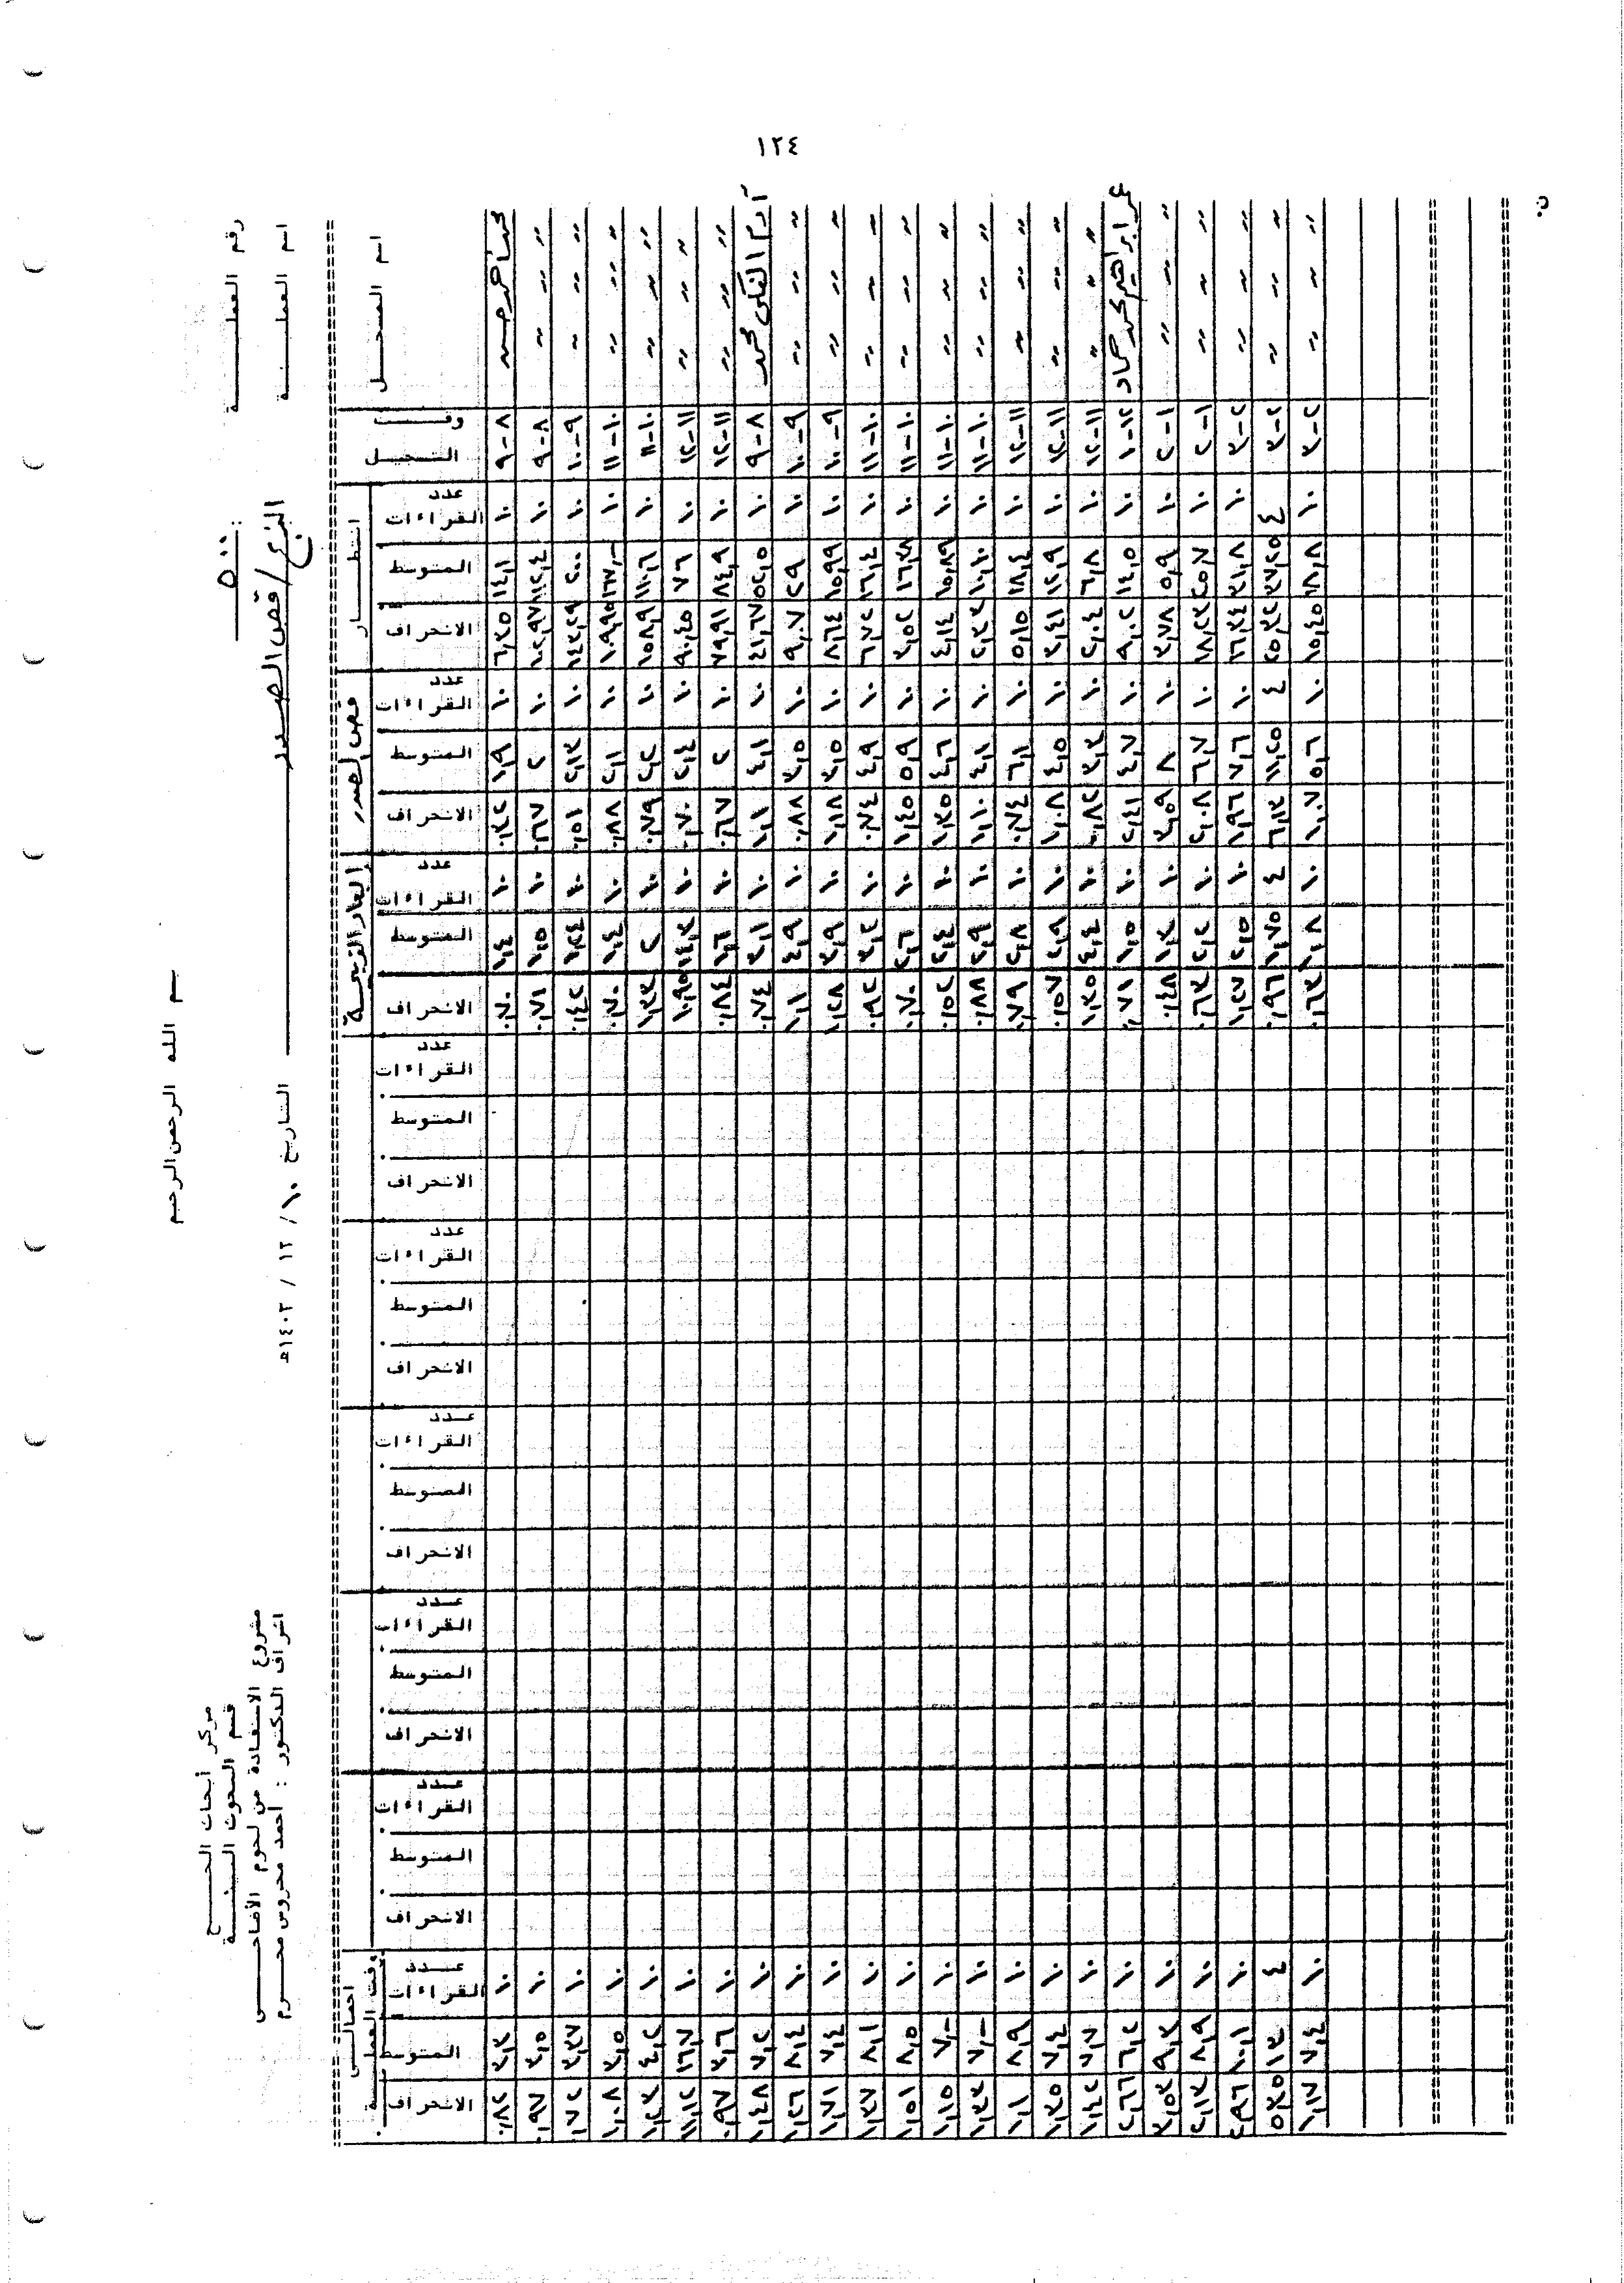 ١٢٤
بسم الله الرحمن الرحيم
رقم العملية : ٥٠٠
اسم العملية الذبح / قص الصدر التاريخ ١٠ / ١٢ / ١٤٠٢هـ
مركز أبحاث الحج
قسم البحوث البيئية
مشروع الاستفادة من لحوم الأضاحي
اشراف الدكتور : أحمد محروس محرم
اسم المسجل وقت التسجيل انتظار قص الصدر ابعاد الذبيحة اجمالي وقت العملية
عدد القراءات المتوسط الانحراف عدد القراءات المتوسط الانحراف عدد القراءات المتوسط الانحراف عدد القراءات المتوسط الانحراف عدد القراءات المتوسط الانحراف عدد القراءات المتوسط الانحراف عدد القراءات المتوسط الانحراف عدد القراءات المتوسط الانحراف عدد القراءات المتوسط الانحراف
محمد أحمد حسن ٨-٩ ١٠ ١٤,١ ٦,٣٥ ١٠ ١,٩ ٠,٣٢ ١٠ ١,٤ ٠,٧٠ ١٠ ٣,٣ ٠,٨٢
〃 〃 〃 ٨-٩ ١٠ ١١٢,٤ ١٠٢,٩٧ ١٠ ٢ ٠,٦٧ ١٠ ١,٥ ٠,٧١ ١٠ ٣,٥ ٠,٩٧
〃 〃 〃 ٩-١٠ ١٠ ٢٠٠ ١٤٣,٢٩ ١٠ ٢,١٣ ٠,٥١ ١٠ ١,٢٤ ٠,٤٢ ١٠ ٣,٣٧ ٠,٧٢
〃 〃 〃 ١٠-١١ ١٠ ١٦٧,- ١٠٩,٩٥ ١٠ ٢,١ ٠,٨٨ ١٠ ١,٤ ٠,٧٠ ١٠ ٣,٥ ١,٠٨
〃 〃 〃 ١٠-١١ ١٠ ١١٠,٦ ١٥٨,٩ ١٠ ٢,٢ ٠,٧٩ ١٠ ٢ ١,٣٣ ١٠ ٤,٢ ١,٢٣
〃 〃 〃 ١١-١٢ ١٠ ٧٦ ٩٠,٤٥ ١٠ ٢,٤ ٠,٧٠ ١٠ ١٤,٣ ١٠,٩٥ ١٠ ١٦,٧ ١١,١٢
〃 〃 〃 ١١-١٢ ١٠ ٨٤,٩ ٧٩,٩١ ١٠ ٢ ٠,٦٧ ١٠ ١,٦ ٠,٨٤ ١٠ ٣,٦ ٠,٩٧
آدم الفكي محمد ٨-٩ ١٠ ٥٢,٥ ٤١,٦٧ ١٠ ٤,١ ١,١ ١٠ ٣,١ ٠,٧٤ ١٠ ٧,٢ ١,٤٨
〃 〃 〃 ٩-١٠ ١٠ ٢٩ ٩,٠٧ ١٠ ٣,٥ ٠,٨٨ ١٠ ٤,٩ ١,١ ١٠ ٨,٤ ١,٢٦
〃 〃 〃 ٩-١٠ ١٠ ١٥,٩٩ ٨,٦٤ ١٠ ٣,٥ ١,١٨ ١٠ ٣,٩ ١,٢٨ ١٠ ٧,٤ ١,٧١
〃 〃 〃 ١٠-١١ ١٠ ١٦,٤ ٦,٧٢ ١٠ ٤,٩ ٠,٧٤ ١٠ ٣,٢ ٠,٩٢ ١٠ ٨,١ ١,٣٧
〃 〃 〃 ١٠-١١ ١٠ ١٦,٣٨ ٣,٥٢ ١٠ ٥,٩ ١,٤٥ ١٠ ٢,٦ ٠,٧٠ ١٠ ٨,٥ ١,٥١
〃 〃 〃 ١٠-١١ ١٠ ١٥,٨٩ ٤,١٤ ١٠ ٤,٦ ١,٣٥ ١٠ ٢,٤ ٠,٥٢ ١٠ ٧,- ١,١٥
〃 〃 〃 ١٠-١١ ١٠ ١١,١٠ ٢,٣٣ ١٠ ٤,١ ١,١٠ ١٠ ٢,٩ ٠,٨٨ ١٠ ٧,- ١,٣٣
〃 〃 〃 ١١-١٢ ١٠ ١٨,٤ ٥,١٥ ١٠ ٦,١ ٠,٧٤ ١٠ ٢,٨ ٠,٧٩ ١٠ ٨,٩ ١,١
〃 〃 〃 ١١-١٢ ١٠ ١٢,٩ ٣,٤١ ١٠ ٤,٥ ١,٠٨ ١٠ ٢,٩ ٠,٥٧ ١٠ ٧,٤ ١,٣٥
〃 〃 〃 ١١-١٢ ١٠ ٦,٨ ٢,٠٤ ١٠ ٣,٣ ٠,٨٢ ١٠ ٤,٤ ١,٣٥ ١٠ ٧,٧ ١,٤٢
عمر ابراهيم محمد حماد ١٢-١ ١٠ ١٤,٥ ٩,٠٢ ١٠ ٤,٧ ٢,٤١ ١٠ ١,٥ ٠,٧١ ١٠ ٦,٢ ٢,٦٦
〃 〃 〃 ١-٢ ١٠ ٥,٩ ٣,٧٨ ١٠ ٨ ٣,٥٩ ١٠ ١,٣ ٠,٤٨ ١٠ ٩,٣ ٣,٥٣
〃 〃 〃 ١-٢ ١٠ ٢٥,٧ ١٨,٢٣ ١٠ ٦,٧ ٢,٠٨ ١٠ ٢,٢ ٠,٦٣ ١٠ ٨,٩ ٢,١٣
〃 〃 〃 ٢-٣ ١٠ ٢١,٨ ١٦,٣٤ ١٠ ٧,٦ ١,٩٦ ١٠ ٢,٥ ١,٢٧ ١٠ ١٠,١ ٢,٩٦
〃 〃 〃 ٢-٣ ٤ ٣٧,٢٥ ٢٥,٣٢ ٤ ١١,٢٥ ٦,١٣ ٤ ١,٧٥ ٠,٩٦ ٤ ١٣ ٥,٣٥
〃 〃 〃 ٢-٣ ١٠ ١٨,٨ ١٥,٤٥ ١٠ ٥,٦ ١,٠٧ ١٠ ١,٨ ٠,٦٣ ١٠ ٧,٤ ١,١٧
ن.